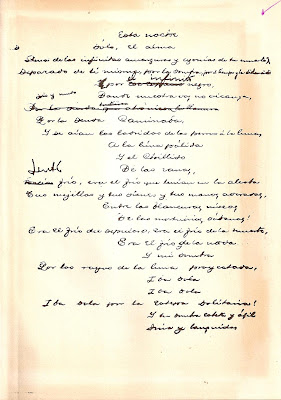 Esta noche
Sólo, el alma
Llena de las infinitas amarguras y agonías de tu muerte,
Separado de ti misma, por la sombra, por el tiempo y la distancia
Por el infinito negro,
Donde nuestra voz no alcanza,
Por la senda caminaba.
Y se oían los ladridos de los perros a la luna,
A la luna pálida
Y el chillido
De las ranas,
Sentí frío, era el frío que tenían en la alcoba
Tus mejillas y tus sienes y tus manos adoradas,
Entre las blancuras níveas
De las mortuorias sábanas!
Era el frío del sepulcro, era el frío de la muerte,
Era el frío de la nada
Y mi sombra
Por los rayos de la luna proyectada,
Iba sola
Iba sola
Iba sola por la estepa solitaria!
Y tu sombra esbelta y ágil
Fina y lánguida